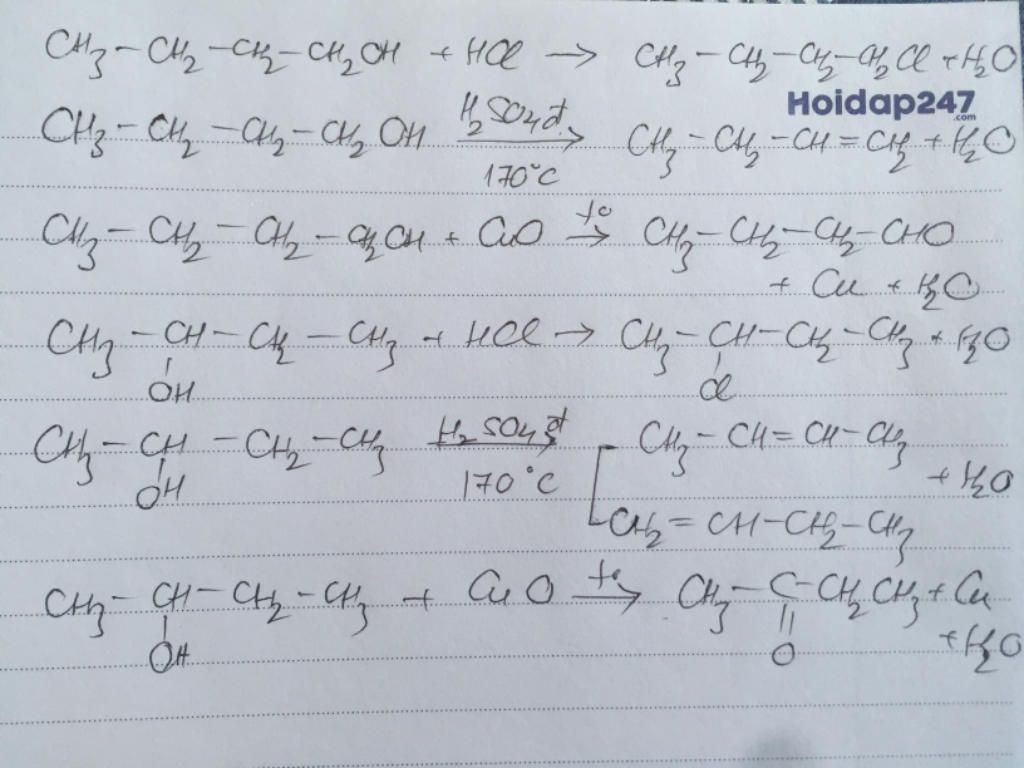 CH3 – CH2 – CH2 – CH2OH + HCl → CH3 – CH2 – CH2 – CH2Cl + H2O
Hoidap247
.com
CH3 – CH2 – CH2 – CH2OH H2SO4đ → 170°C CH3 – CH2 – CH = CH2 + H2O
CH3 – CH2 – CH2 – CH2OH + CuO t° → CH3 – CH2 – CH2 – CHO
+ Cu + H2O
CH3 – CH – CH2 – CH3 + HCl → CH3 – CH – CH2 – CH3 + H2O
OH Cl
CH3 – CH – CH2 – CH3 H2SO4đ 170°C CH3 – CH = CH – CH3
OH + H2O
CH2 = CH – CH2 – CH3
CH3 – CH – CH2 – CH3 + CuO t° → CH3 – C – CH2CH3 + Cu
OH O + H2O